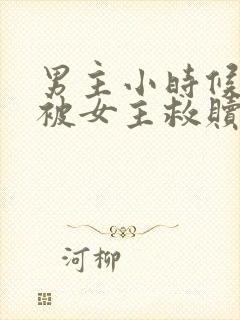 男主小時候
被女主救贖
河柳